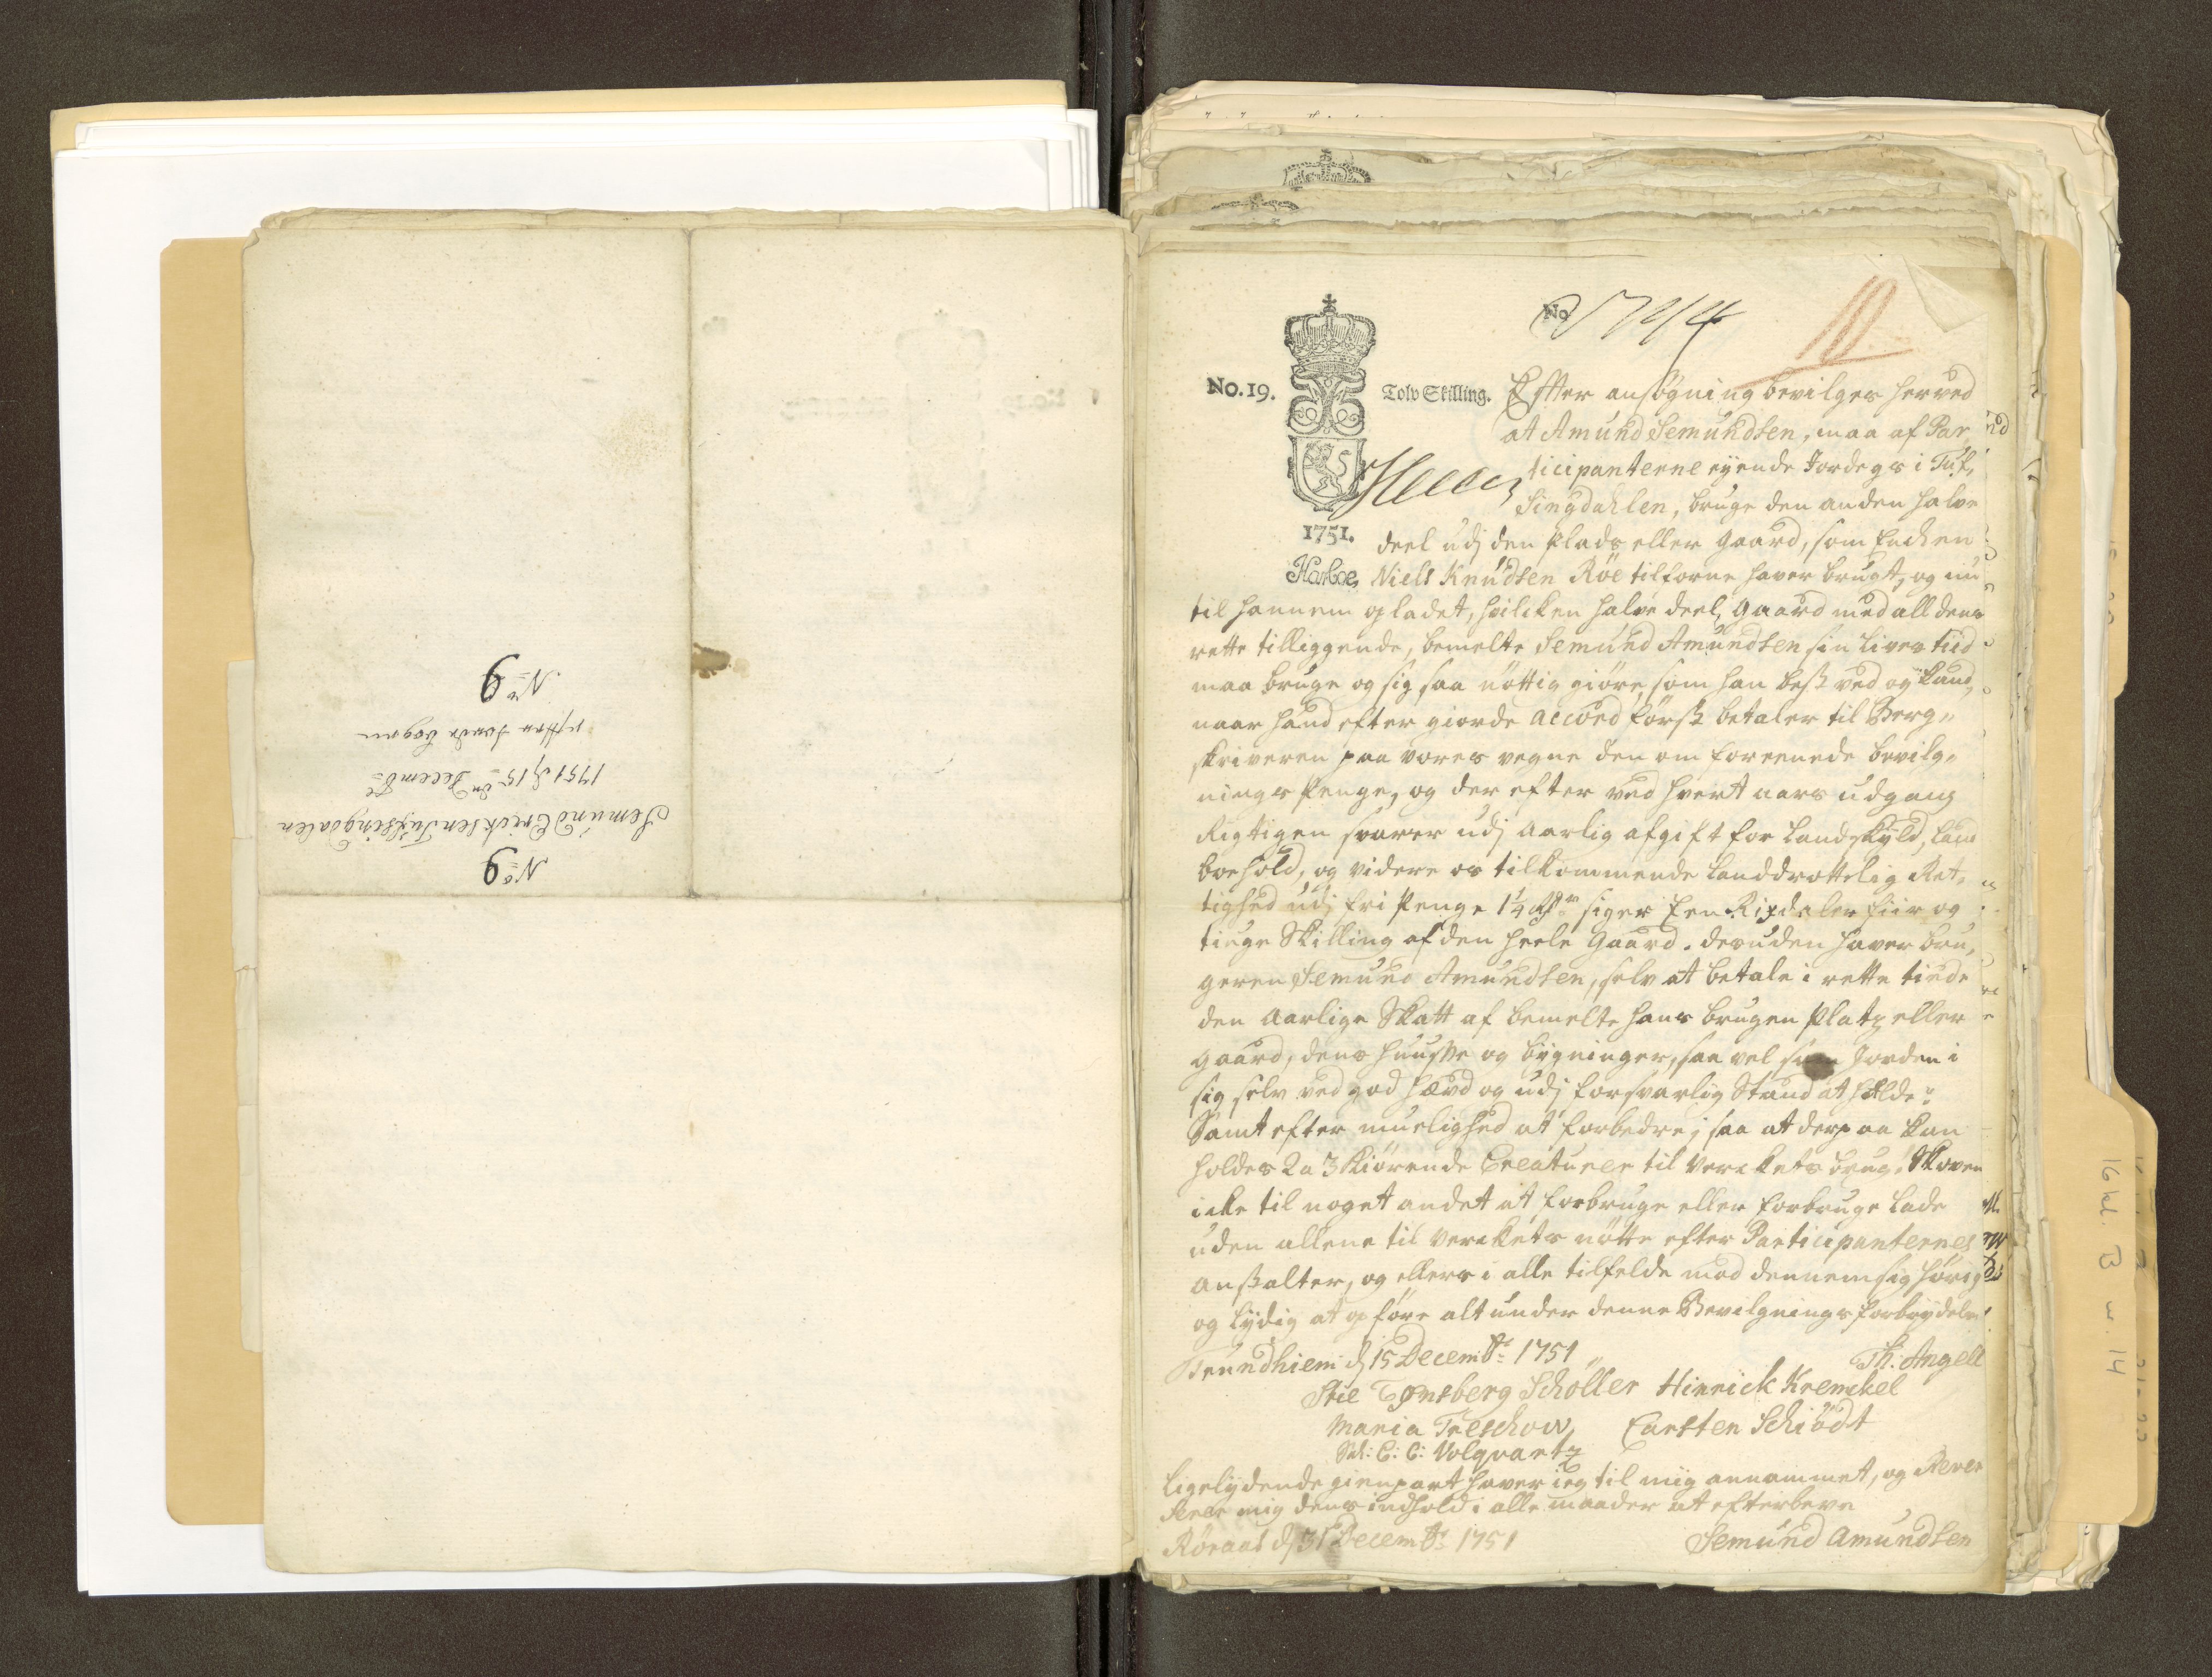 No 9
Semund Ericksen Tufsingdalen
1751 d 15 den Decembr
No 9
No 5744
10
No. 19.
Tolv Skilling.
1751.
Efter ansögning bevilges herved
at Amund Semundsen, maa af Par
ticipanterne eyende Jordegs i Tuf,
singdahlen, bruge den anden halve
deel udj den plads eller gaard, som Encken
Niels Knudsen Röe tilforne haver brugt, og nu
til hannem opladet, hvilcken halve deel gaard med all dens
rette tilliggende, bemelte Semund Amundsen sin Livestiid
maa bruge og sig saa nöttig giöre, som han best ved og kand
naar hand efter giorde accord först betaler til Berg„
skriveren paa vores vegne den om foreenede bevilg„
nings Penge, og der efter ved hvert aars udgang
Rigtigen svarer udj aarlig afgift for Landskyld, Land
boehold, og videre os tilkommende Landdrottelig Ret„
tighed udj frie Penge 1¼ Rdr siger Een Rixdaler fiir og
tiuge Skilling af den heele Gaard. desuden haver bru„
geren Semund Amundsen, selv at betale i rette tiide
den Aarlige Skatt af bemelte hans brugen Platz eller
gaard, dens huuse og bygninger, saa vel som Jorden i
sig selv ved god hævd og udj forsvarlig Stand at holde:
Samt efter muelighed at forbedre, saa at derpaa kan
holdes 2 a 3 Kiörende Creaturer til Verckets brug. Skoven
icke til noget andet at forbruge eller forbruge lade
uden allene til Verckets nötte efter Participanternes
anstalter, og ellers i alle tilfelde mod dennem sig hörig
og Lydig at opföre alt under denne Bevilgnings forbrydelse
Trundhiem d 15 Decembr 1751
Th. Angell
Stie Tønsberg Schöller Hinrick Krenckel
Maria Treschow, Carsten Schiödt
Sal: C: C: Volqvartz
Ligelydende gienpart haver ieg til mig annammet, og Rever
serer mig dens indhold i alle maader at efterleve
Röraas d 31 Decembr 1751
Semund Amundsen